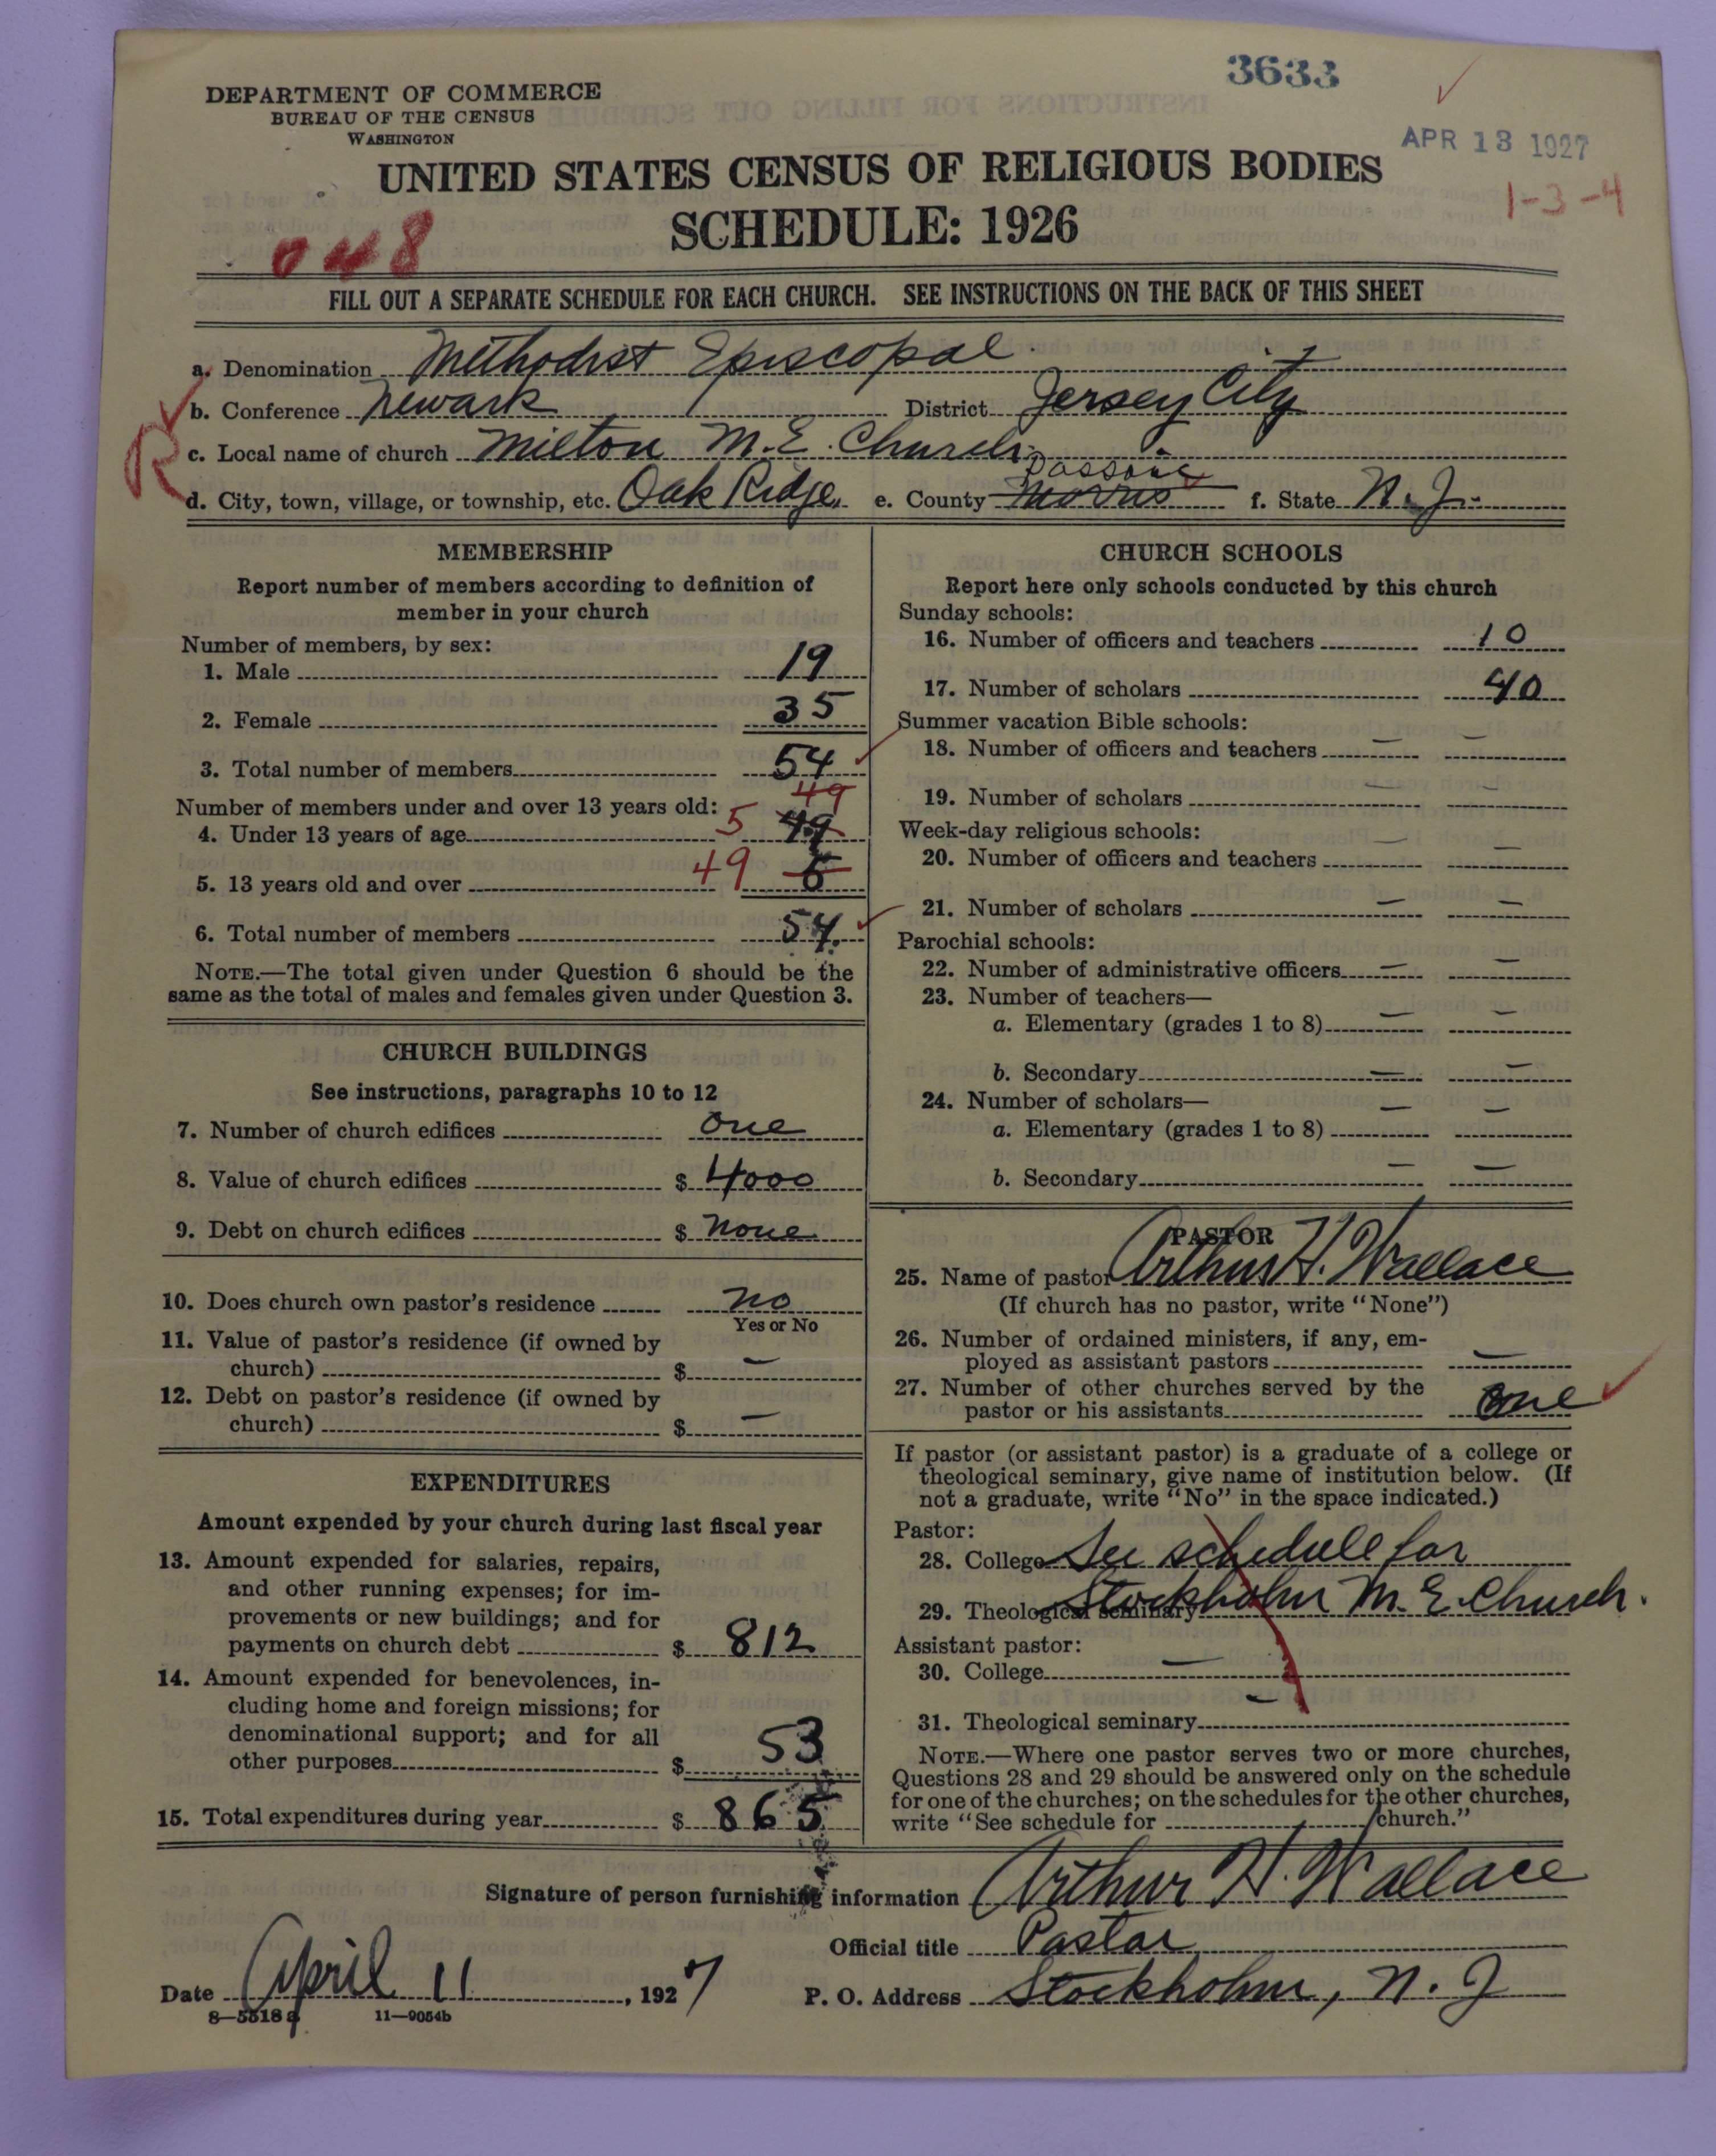 3633
DEPARTMENT OF COMMERCE
BUREAU OF THE CENSUS
WASHINGTON
APR 13 1927
UNITED STATES CENSUS OF RELIGIOUS BODIES
1-3-4
SCHEDULE: 1926
048
FILL OUT A SEPARATE SCHEDULE FOR EACH CHURCH. SEE INSTRUCTIONS ON THE BACK OF THIS SHEET
a. Denomination Methodist Episcopal
b. Conference Newark District Jersey City
R
c. Local name of church Milton M.E. Church
Passaic
d. City, town, village, or township, etc. Oak Ridge, e. County Morris f. State N.J.
MEMBERSHIP
Report number of members according to definition of
member in your church
Number of members, by sex:
1. Male 19
2. Female 35
3. Total number of members 54
49
Number of members under and over 13 years old:
4. Under 13 years of age 5 49
5. 13 years old and over 49 5
6. Total number of members 54.
NOTE.—The total given under Question 6 should be the
same as the total of males and females given under Question 3.
CHURCH BUILDINGS
See instructions, paragraphs 10 to 12
7. Number of church edifices one
8. Value of church edifices $ 4000
9. Debt on church edifices $ none
10. Does church own pastor's residence no
Yes or No
11. Value of pastor's residence (if owned by
church) $ —
12. Debt on pastor's residence (if owned by
church) $ —
EXPENDITURES
Amount expended by your church during last fiscal year
13. Amount expended for salaries, repairs,
and other running expenses; for im-
provements or new buildings; and for
payments on church debt $ 812
14. Amount expended for benevolences, in-
cluding home and foreign missions; for
denominational support; and for all
other purposes $ 53
15. Total expenditures during year $ 865
CHURCH SCHOOLS
Report here only schools conducted by this church
Sunday schools:
16. Number of officers and teachers 10
17. Number of scholars 40
Summer vacation Bible schools:
18. Number of officers and teachers — —
19. Number of scholars — —
Week-day religious schools:
20. Number of officers and teachers — —
21. Number of scholars — —
Parochial schools:
22. Number of administrative officers — —
23. Number of teachers—
a. Elementary (grades 1 to 8) — —
b. Secondary — —
24. Number of scholars—
a. Elementary (grades 1 to 8) — —
b. Secondary — —
PASTOR
25. Name of pastor Arthur H. Wallace
(If church has no pastor, write "None")
26. Number of ordained ministers, if any, em-
ployed as assistant pastors —
27. Number of other churches served by the
pastor or his assistants one
If pastor (or assistant pastor) is a graduate of a college or
theological seminary, give name of institution below. (If
not a graduate, write "No" in the space indicated.)
Pastor:
28. College See schedule for
29. Theological seminary Stockholm M.E. Church.
Assistant pastor:
30. College —
31. Theological seminary —
NOTE.—Where one pastor serves two or more churches,
Questions 28 and 29 should be answered only on the schedule
for one of the churches; on the schedules for the other churches,
write "See schedule for church."
Signature of person furnishing information Arthur H. Wallace
Official title Pastor
Date April 11, 1927
P. O. Address Stockholm, N. J
8—5518 a 11—9054b